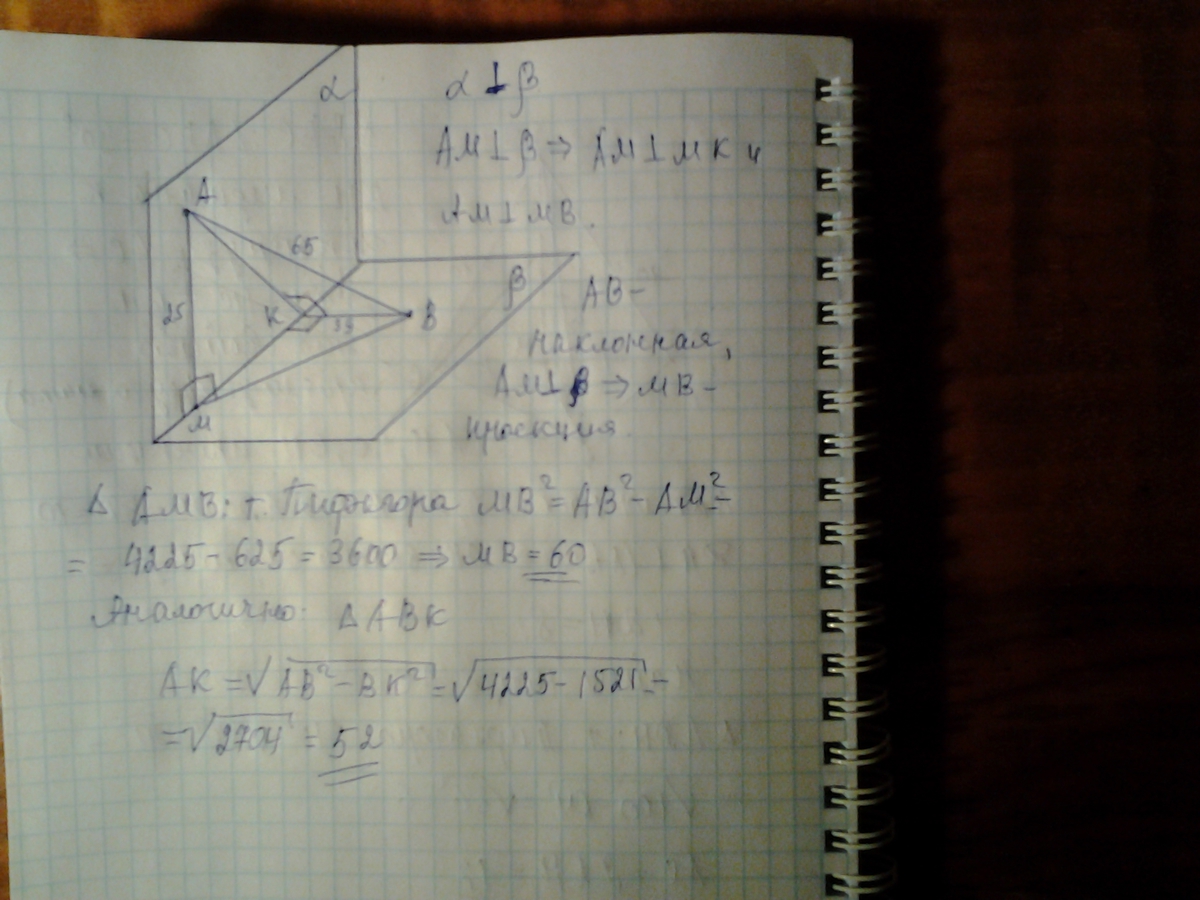 α
α ⊥ β
AM ⊥ β ⇒ AM ⊥ MK и
AM ⊥ MB.
A
65
25
K
39
B
β
M
AB –
наклонная,
AM ⊥ β ⇒ MB –
проекция.
Δ AMB: т. Пифагора MB² = AB² – AM² =
= 4225 – 625 = 3600 ⇒ MB = 60
Аналогично: Δ ABK
AK = √AB² – BK² = √4225 – 1521 =
= √2704 = 52